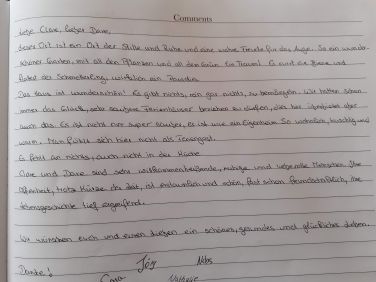 Comments
Liebe Clare, lieber Dave,
dieser Ort ist ein Ort der Stille und Ruhe und eine wahre Freude für das Auge. So ein wunder-
schöner Garten, mit all den Pflanzen und all dem Grün. Ein Traum! Es surrt die Biene und
flattert der Schmetterling, wirklich ein Paradies.
Das Haus ist wunderschön! Es gibt nichts, rein gar nichts, zu bemängeln. Wir hatten schon
immer das Glück, sehr saubere Ferienhäuser beziehen zu dürfen, dies hier übertrifft aber
auch das. Es ist nicht nur super sauber, es ist wie ein Eigenheim. So wohnlich, kuschlig und
warm. Man fühlt sich hier nicht als Feriengast.
Es fehlt an nichts, auch nicht in der Küche.
Clare und Dave sind sehr willkommenheißende, ruhige und Menschen. Ihre
Offenheit, trotz Kürze der Zeit, ist erstaunlich und schön, fast schon freundschaftlich, ihre
Lebensgeschichte tief ergreifend.
Wir wünschen euch und euren Lieben ein schönes, gesundes und glückliches Leben.
Danke!
Jörg
Nathalie